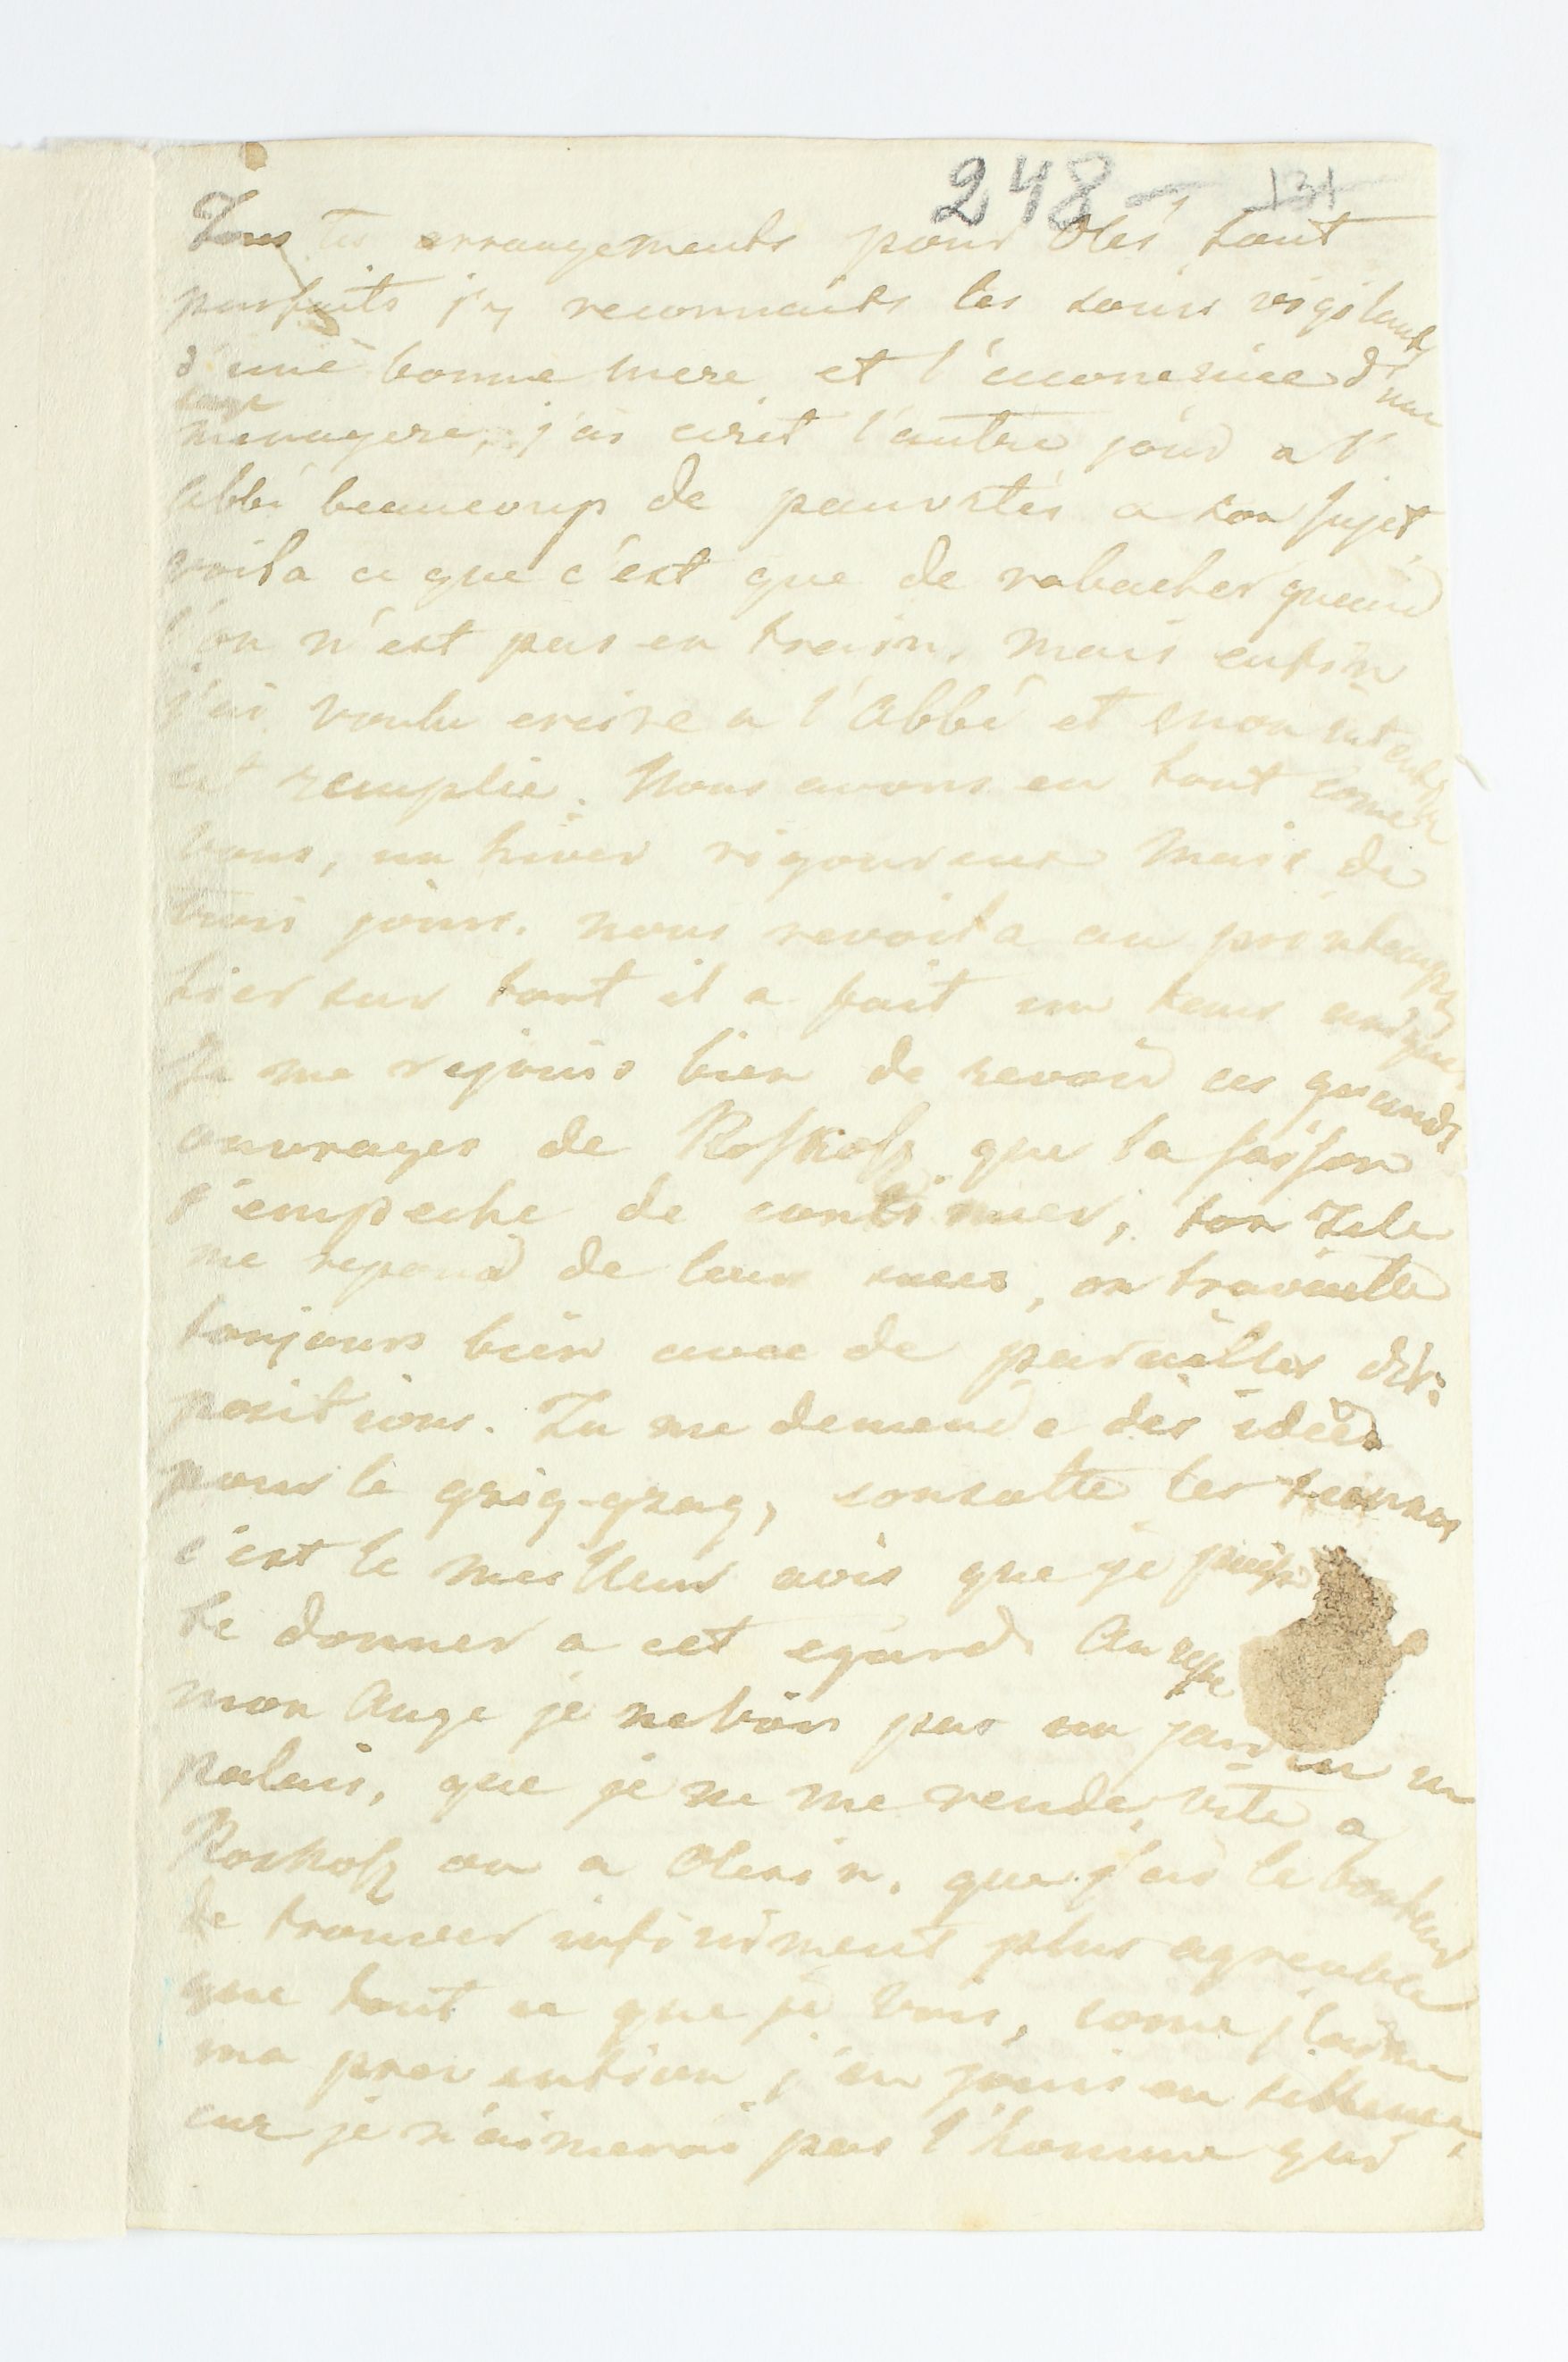 248 131
Tous tes arrangements pour Oles sont
parfaits j'y reconnaits les soins vigilants
d'une bonne mere et l'economie d'une
sage
menagere, j'ai cirit l'autre jour a l'
abbé beaucoup de pauvrtés a son sujet
voila ce que c'est que de rabacher quand
l'on n'est pas en train, mais enfin
j'ai voulu ecrire a l'Abbé et mon intention
est remplie. Nous avons eu tout come
vous, un hiver rigoureux mais de
trois jours. nous revoila au printemps
hier sur tout il a fait un tems
Je me rejouis bien de revoir ces grands
ouvrages de Roskosz que la saison
t'empeche de continuer, ton zele
me repond de leur succes, on travaille
toujours bien avec de pareilles dis:
positions. Tu me demende des idées
pour le grig-grag, consulte les
c'est le meilleur avis que je puisse
te donner a cet egard. Au reste
mon Ange je ne vois pas un jardin un
palais, que je ne me rende vite a
Roskosz ou a Olesin, que j'ai le bonheur
de trouver infiniment plus agreable
que tout ce que je vois, come j'aime
ma prevention j'en jouis en sillence,
car je n'aimerai pas l'homme qui